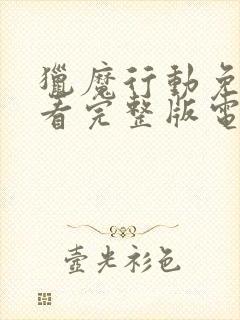 獵魔行動免
看完整版電
壺光衫色